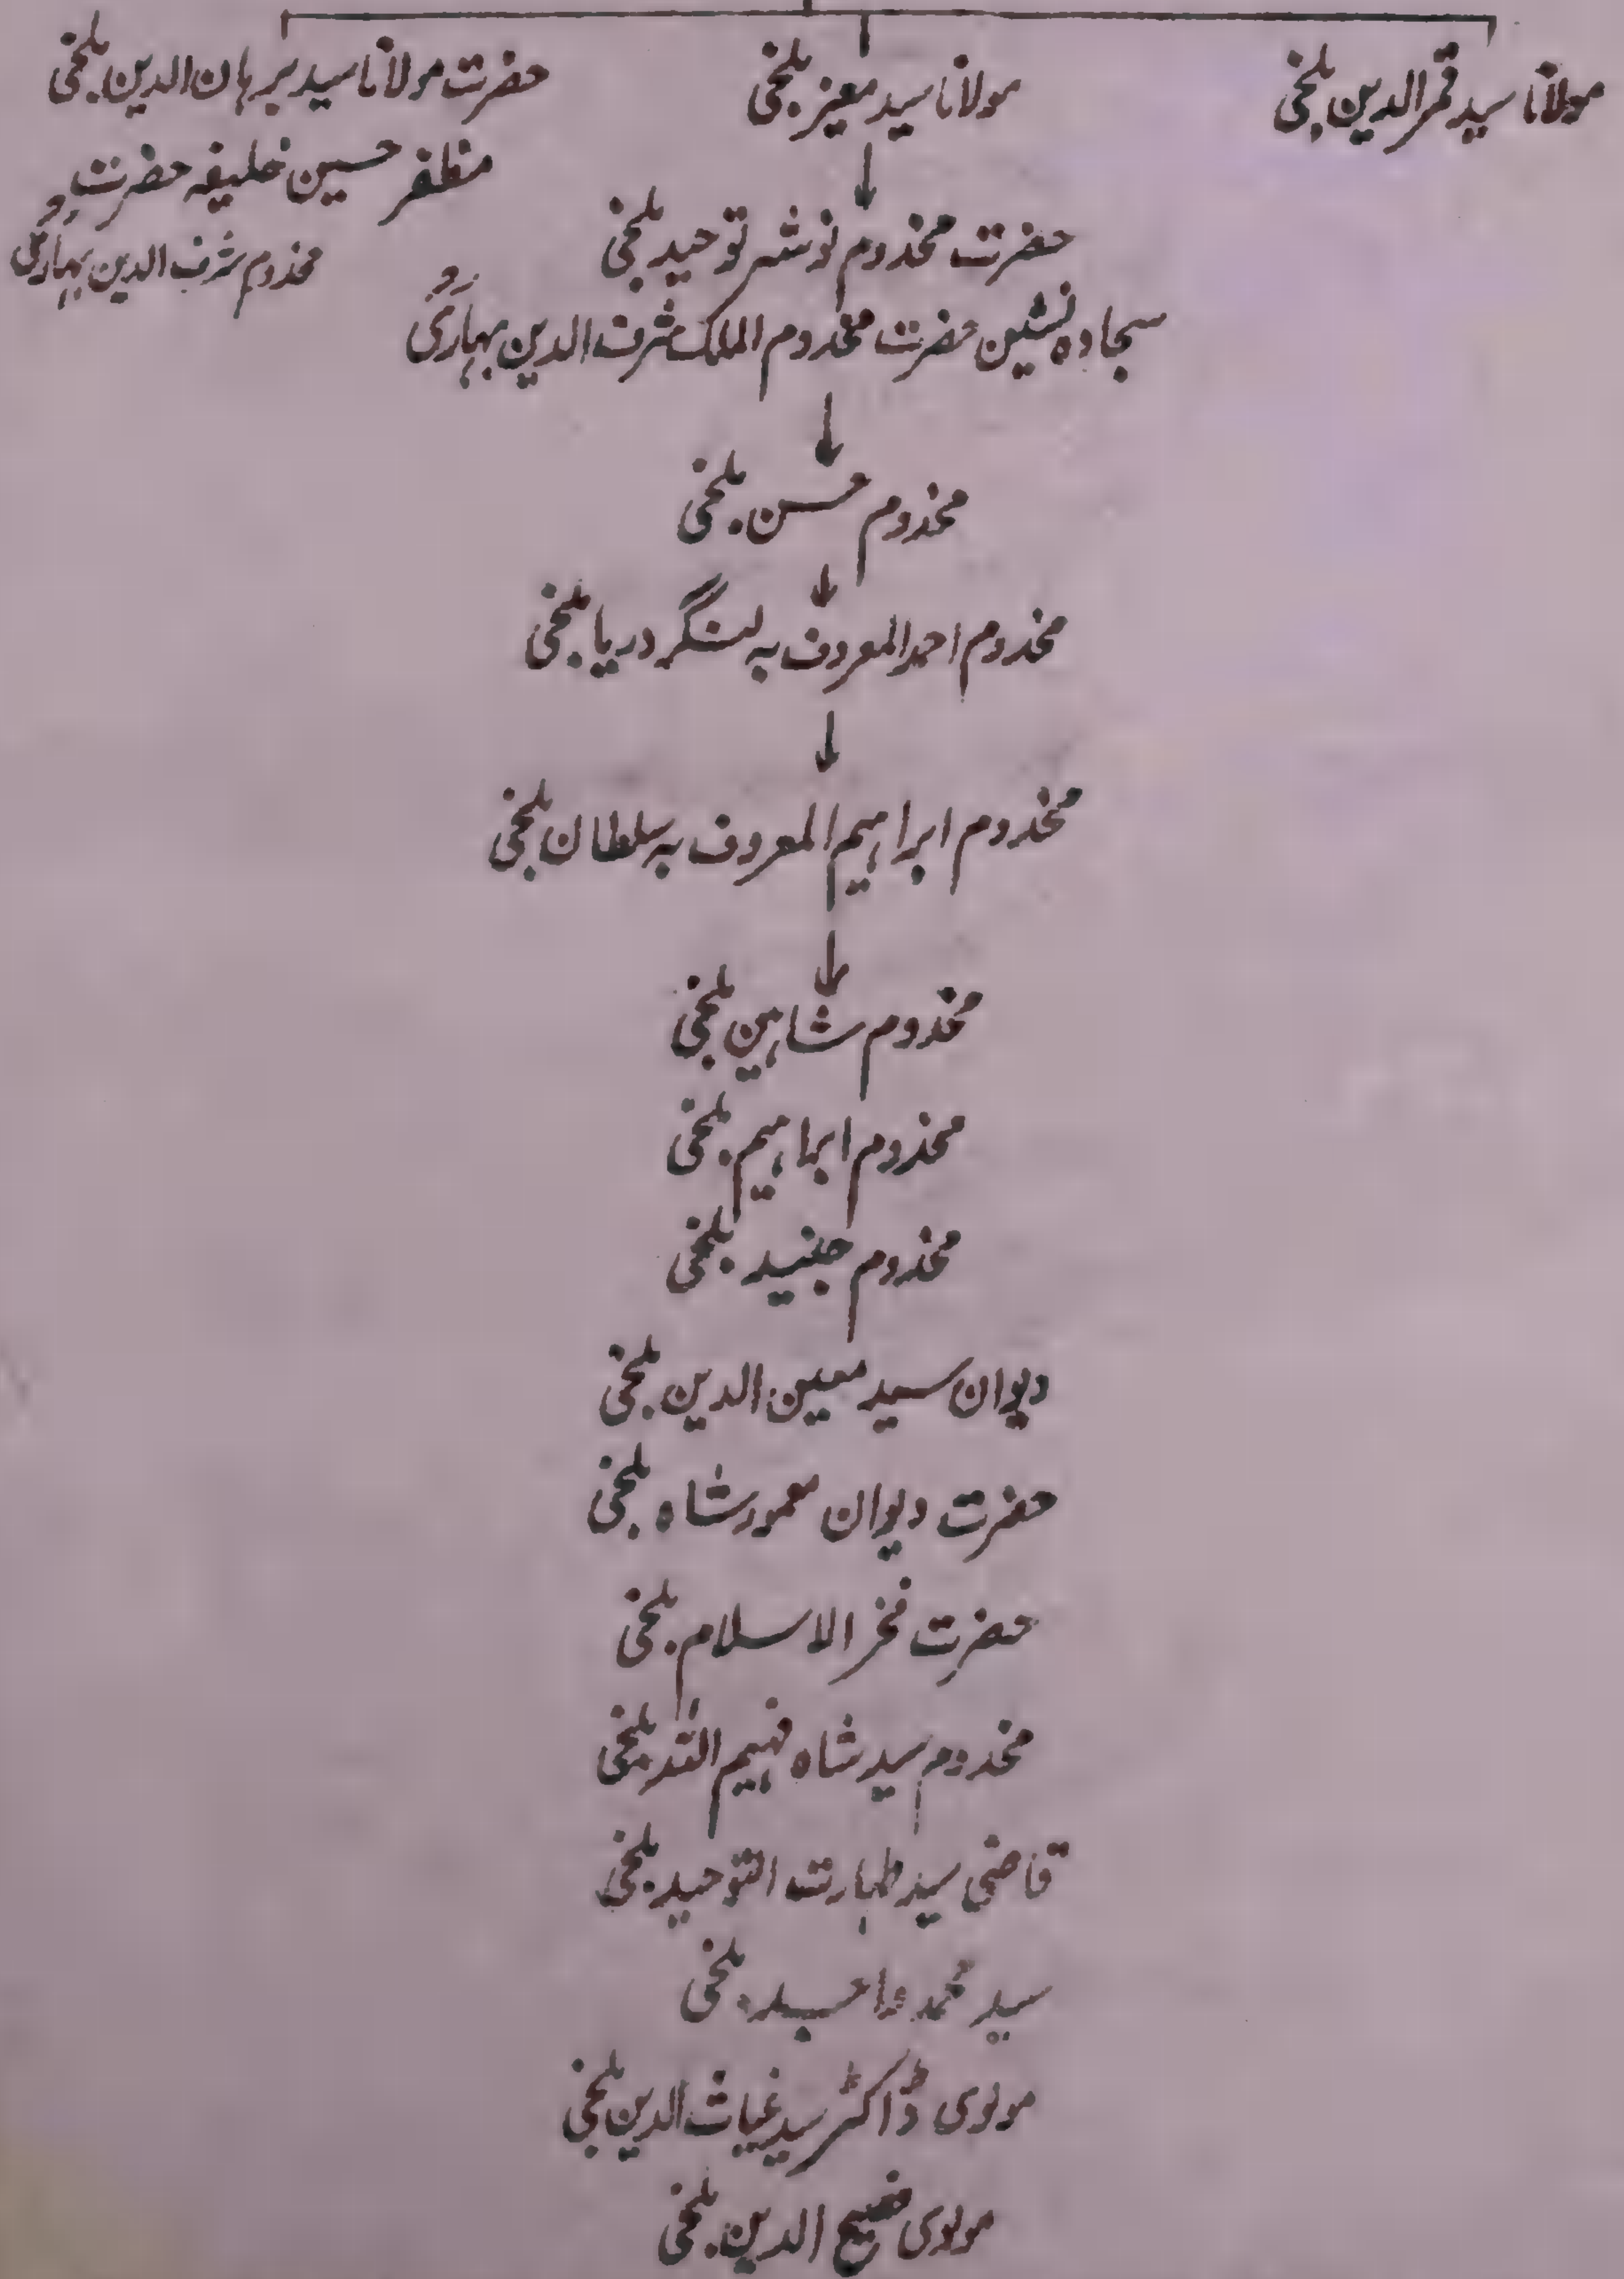 مولانا سید قمر الدین بلخی
مولانا سید معیز بلخی
حضرت مولانا سید برہان الدین بلخی
مظفر حسین خلیفہ حضرت
مخدوم شرف الدین بہاریؒ
حضرت مخدوم نوشہ توحید بلخی
سجادہ نشین حضرت مخدوم الملک شرف الدین بہاریؒ
مخدوم حسن بلخی
مخدوم احمد المعروف بہ لنگر دریا بلخی
مخدوم ابراہیم المعروف بہ سلطان بلخی
مخدوم شاہین بلخی
مخدوم ابراہیم بلخی
مخدوم جنید بلخی
دیوان سید معین الدین بلخی
حضرت دیوان معمور شاہ بلخی
حضرت فخر الاسلام بلخی
مخدوم سید شاہ فہیم اللہ بلخی
قاضی سید طہارت التوحید بلخی
سید محمد بلخی
مولوی ڈاکٹر سید غیاث الدین بلخی
مولوی فصیح الدین بلخی